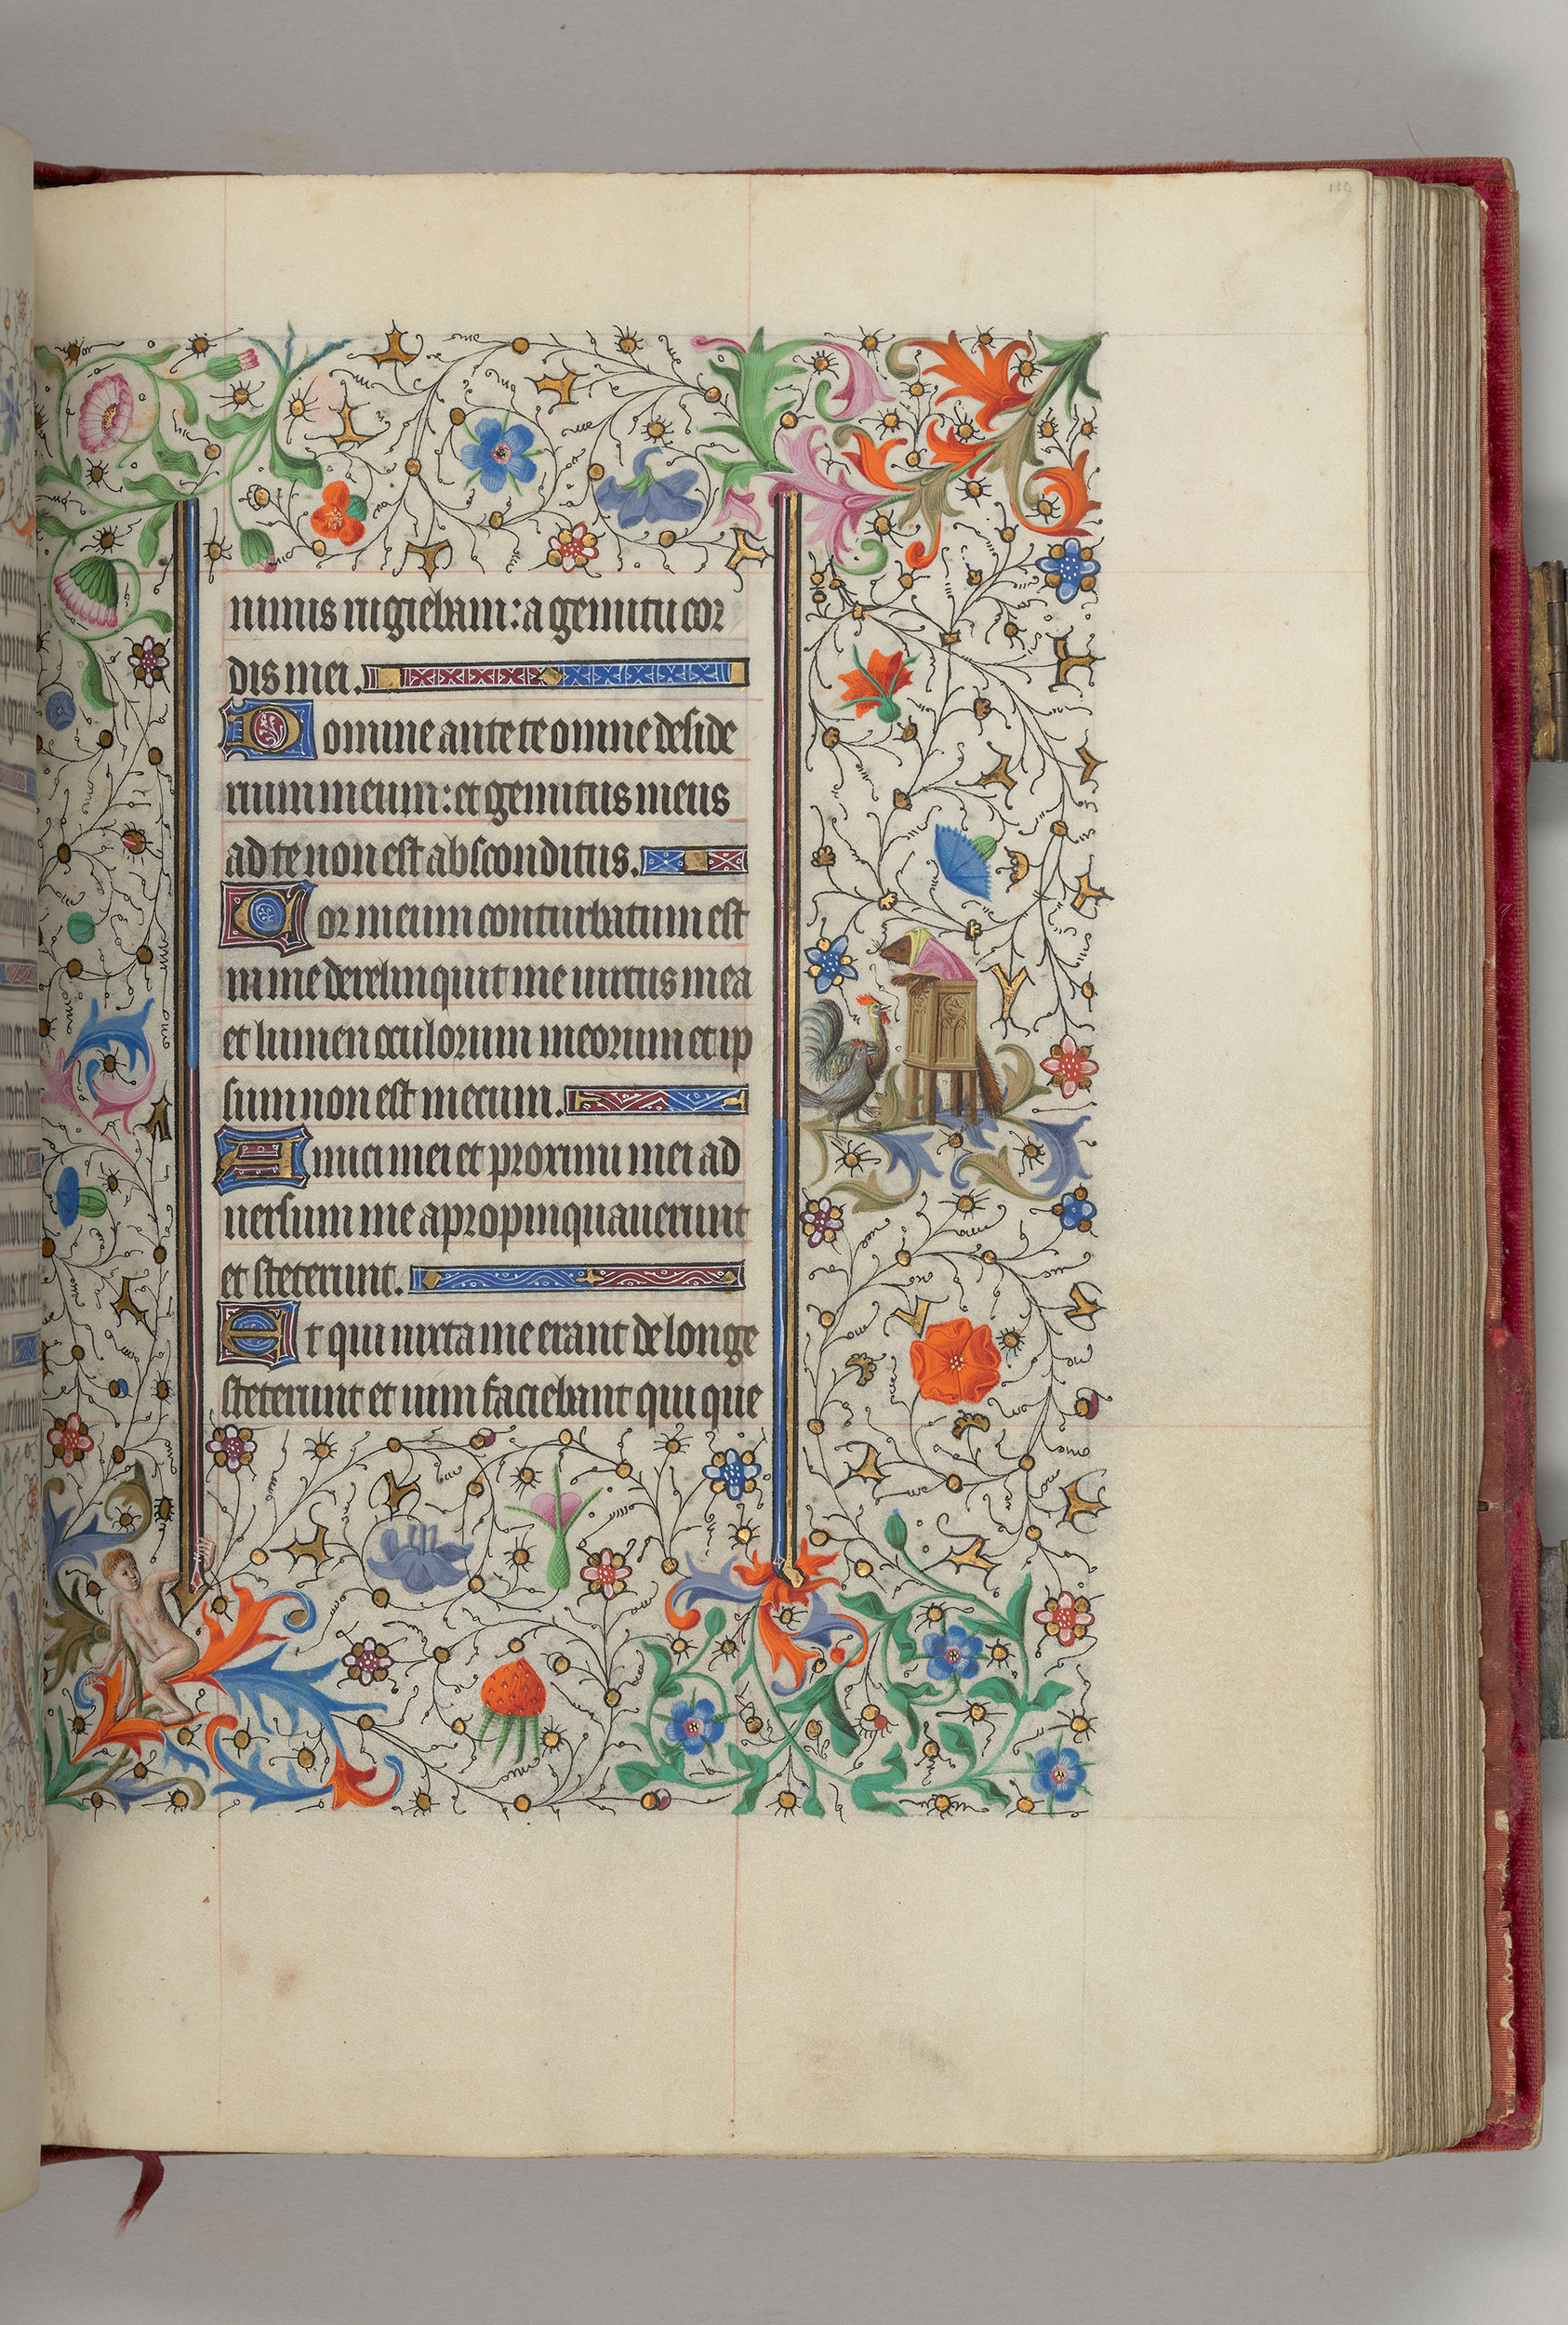 110
nimis rugiebam: a gemitu cor
dis mei.
Domine ante te omne deside
rium meum: et gemitus meus
ad te non est absconditus.
Cor meum conturbatum est
in me dereliquit me uirtus mea
et lumen oculorum meorum et ip
sum non est mecum.
Amici mei et proximi mei ad
uersum me apropinquauerunt
et steterunt.
Et qui iuxta me erant de longe
steterunt et uim faciebant qui que